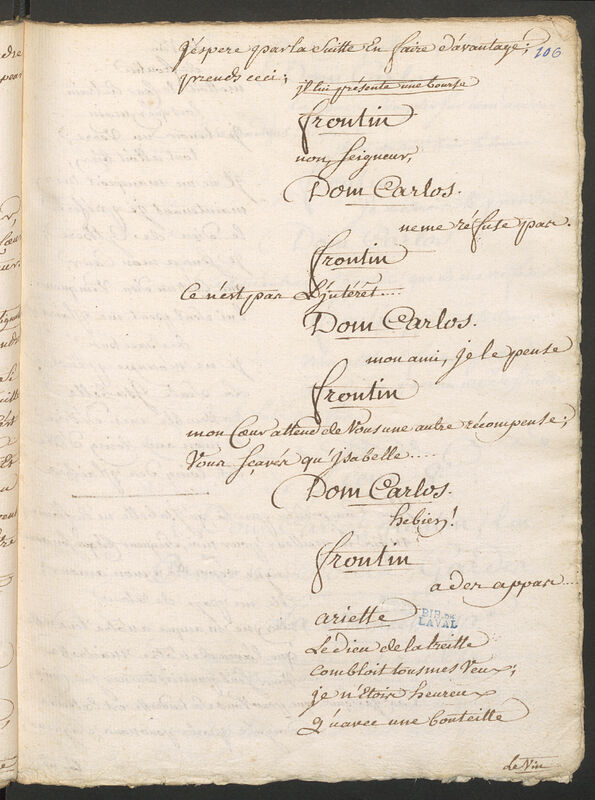 j'éspere qpar la Suitte En faire d'avantagé; 106
prends ceci; jl lui présente une bourse
frontin
non, Seigneur,
Dom Carlos.
ne me réfuse pas.
frontin
Ce n'est pas L'jntérêt....
Dom Carlos.
mon ami, je le pense
frontin
mon Cœur attend de Vous une autre récompense;
Vous sçavés qu'jsabelle....
Dom Carlos.
hebien!
frontin
a des appas....
ariette
BIB. DE
LAVAL
Le dieu de la treille
combloit tous mes Veux;
je n'Etois heureux
Qu'avec une bouteille
le Vin